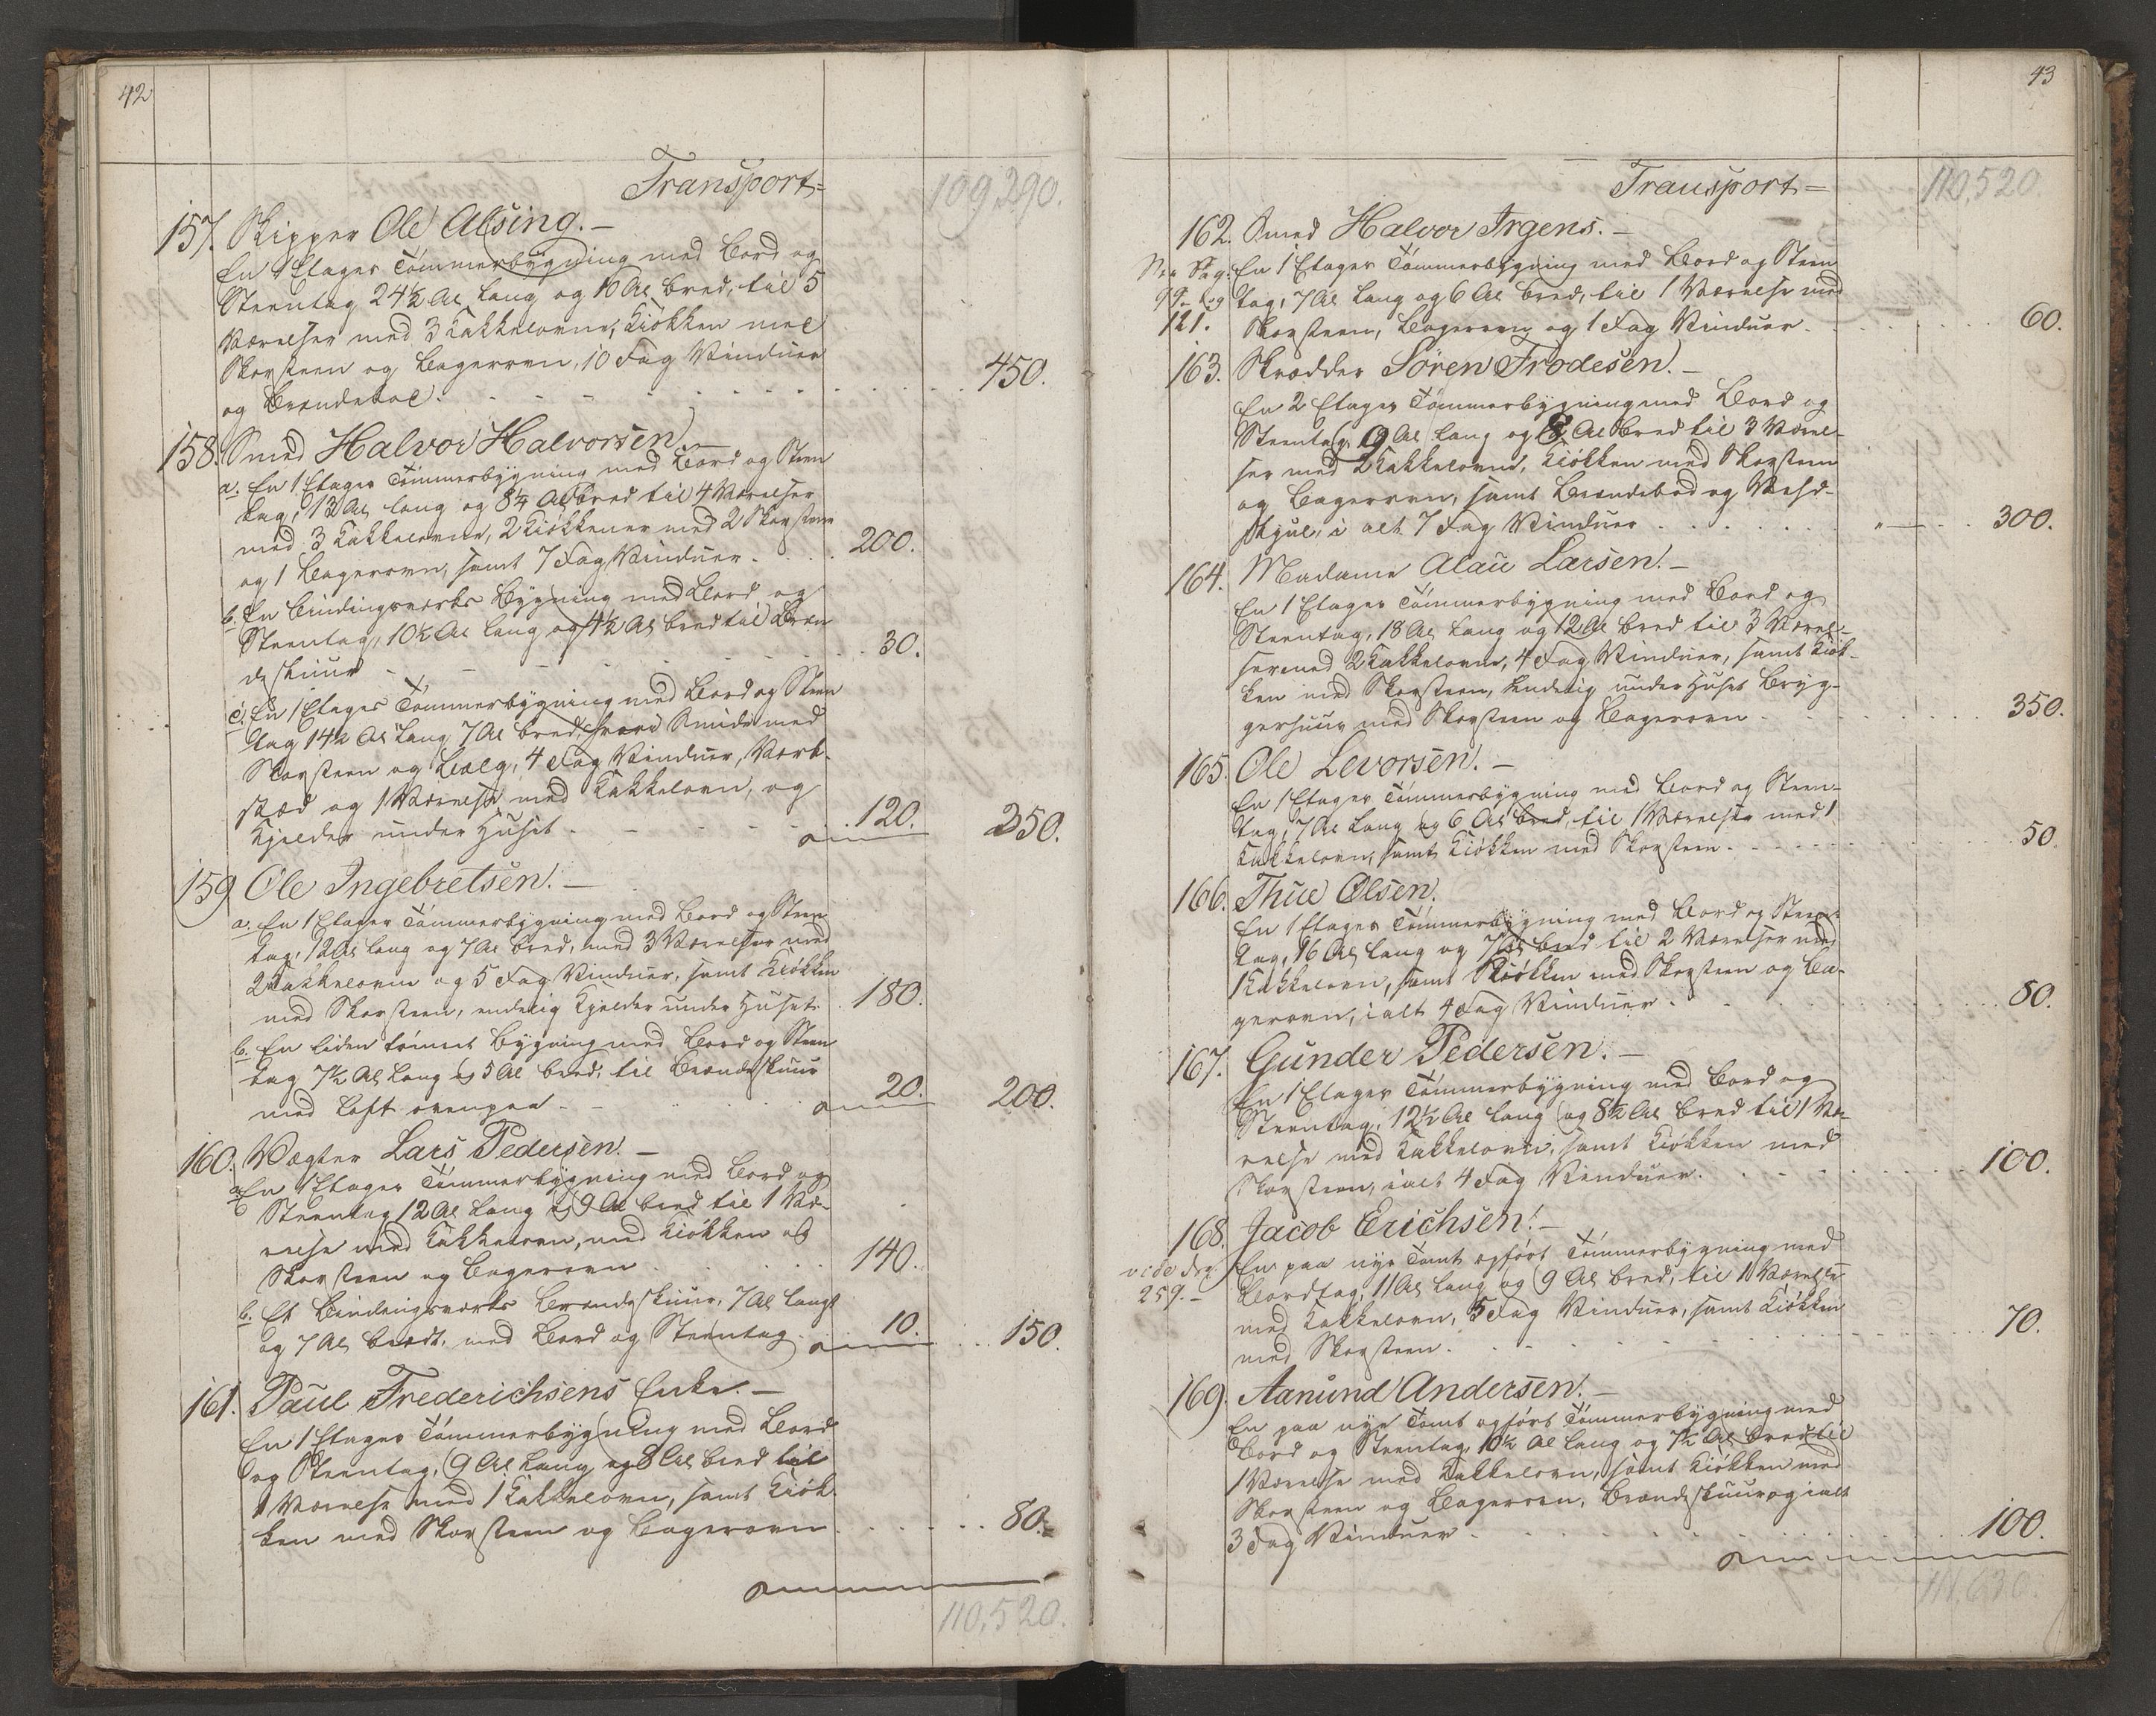 42
Transport=
109,290.
157. Skipper Ole Alsing. –
En 1 Etages Tömmerbÿgning med Bord og
Steentag 24½ Al lang og 10 Al bred, til 5
Værelser med 3 Kakkelovne, Kiökken med
Skorsteen og Bagerovn, 10 Fag Vinduer
og Brændebod. 450.
158. Smed Halvor Halvorsen. –
a. En 1 Etages Tömmerbÿgning med Bord og Steen
tag, 13 Al lang og 8¼ Al bred til 4 Værelser
med 3 Kakkelovne, 2 Kiökkener med 2 Skorstene
og 1 Bagerovn, samt 7 Fag Vinduer. 200.
b. En Bindingsværks Bÿgning med Bord og
Steentag, 10½ Al lang og 4½ Al bred til Bræn
deskuur 30.
c. En 1 Etages Tömmerbÿgning med Bord og Steen
tag 14½ Al lang 7 Al bred, hvori Smide med
Skorsteen og Bælg, 4 Fag Vinduer, Værk-
stæd og 1 Værelse med Kakkelovn, og
Kjelder under Huset. 120. 350.
159. Ole Ingebretsen. –
a. En 1 Etages Tömmerbÿgning med Bord og Steen
tag, 12 Al lang og 7 Al bred, med 3 Værelser med
2 Kakkelovne og 5 Fag Vinduer, samt Kiökken
med Skorsteen, endelig Kjelder under Huset. 180.
b. En liden tömret Bÿgning med Bord og Steen
tag 7½ Al lang og 5 Al bred, til Brændeskuur
med Loft ovenpaa 20. 200.
160. Vægter Lars Pedersen. –
a. En 1 Etages Tömmerbÿgning med Bord og
Steentag 12 Al lang og 9 Al bred til 1 Væ-
relse med Kakkelovn, med Kiökken og
Skorsteen og Bagerovn 140.
b. Et Bindingsværks Brændeskuur, 7 Al langt
og 7 Al bredt, med Bord og Steentag 10. 150.
161. Paul Frederichsens Enke. –
En 1 Etages Tömmerbÿgning med Bord
og Steentag, 9 Al lang og 8 Al bred til
1 Værelse med 1 Kakkelovn, samt Kiök-
ken med Skorsteen og Bagerovn 80.
110,520.
43
Transport=
110,520.
162. Smed Halvor Irgens. –
En 1 Etages Tömmerbÿgning med Bord og Steen
99- og tag, 7 Al lang og 6 Al bred, til 1 Værelse med
121. Skorsteen, Bagerovn og 1 Fag Vinduer. 60.
163. Skrædder Sören Frodesen. –
En 2 Etages Tömmerbÿgning med Bord og
Steentag, 9 Al lang og 8 Al bred til 3 Værel-
ser med 2 Kakkelovne, Kiökken med Skorsteen
og Bagerovn, samt Brændebod og Vehd-
skjul, i alt 7 Fag Vinduer 300.
164. Madame Alau Larsen. –
En 1 Etages Tömmerbÿgning med Bord og
Steentag, 18 Al lang og 12 Al bred til 3 Værel-
ser med 2 Kakkelovne, 4 Fag Vinduer, samt Kiök-
ken med Skorsteen, endelig under Huset Brÿg-
gerhuus med Skorsteen og Bagerovn 350.
165. Ole Levorsen. –
En 1 Etages Tömmerbÿgning med Bord og Steen-
tag, 7 Al lang og 6 Al bred, til 1 Værelse med 1
Kakkelovn, samt Kiökken med Skorsteen. 50.
166. Thue Olsen.
En 1 Etages Tömmerbÿgning med Bord og Steen-
tag, 16 Al lang og 7 Al bred til 2 Værelser med
1 Kakkelovn, samt Kiökken med Skorsteen og Ba-
gerovn, ialt 4 Fag Vinduer. 80.
167. Gunder Pedersen. –
En 1 Etages Tömmerbÿgning med Bord og
Steentag, 12½ Al lang og 8½ Al bred til 1 Væ-
relse med Kakkelovn, samt Kiökken med
Skorsteen, ialt 4 Fag Vinduer. 100.
168. Jacob Erichsen. –
vide En paa nye Tomt opfört Tömmerbÿgning med
259.- Bordtag, 11 Al lang og 9 Al bred, til 1 Værelse
med Kakkelovn, 5 Fag Vinduer, samt Kiökken
med Skorsteen. 70.
169. Aanund Andersen. –
En paa nye Tomt opfört Tömmerbÿgning med
Bord og Steentag, 10½ Al lang og 7½ Al bred til
1 Værelse med Kakkelovn, samt Kiökken med
Skorsteen og Bagerovn, Brændeskuur og ialt
3 Fag Vinduer 100.
111,630.